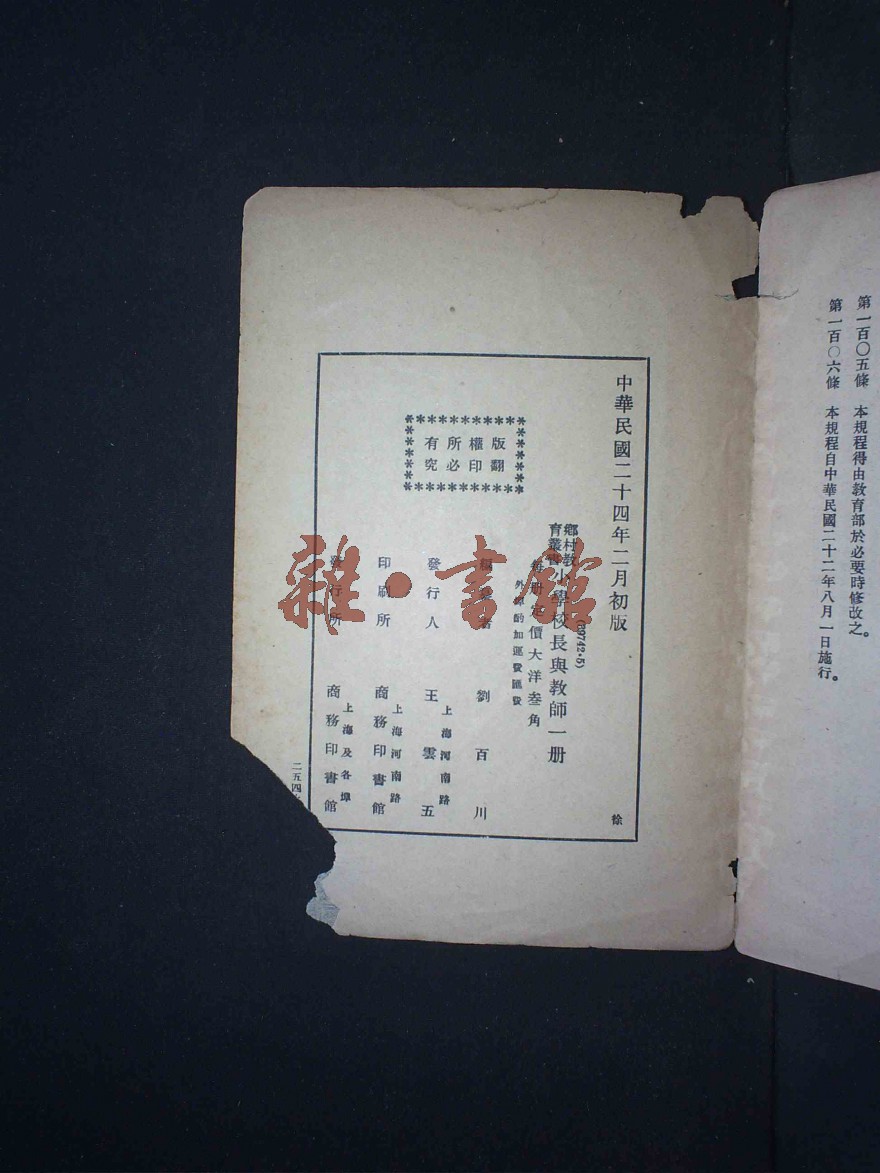 第一百〇五條　本規程得由教育部於必要時修改之。
第一百〇六條　本規程自中華民國二十二年八月一日施行。
中華民國二十四年二月初版
徐
(59742·5)
鄉村教育叢書 小學校長與教師一册
每册定價大洋叁角
外埠酌加運費匯費
版權所有
翻印必究
編纂者 劉百川
發行人 王雲五
上海河南路
印刷所 商務印書館
上海河南路
發行所 商務印書館
上海及各埠
二五四
雜·書館